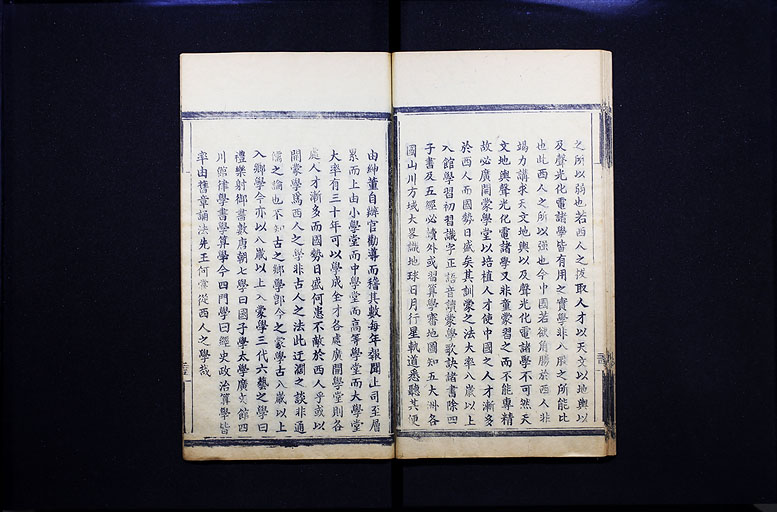 之所以弱也若西人之拔取人才以天文以地輿以
及聲光化電諸學皆有用之實學非八股之所能比
也此西人之所以強也今中國若欲角勝於西人非
竭力講求天文地輿以及聲光化電諸學不可然天
文地輿聲光化電諸學又非童蒙習之而不能專精
故必廣開蒙學堂以培植人才使中國之人才漸多
於西人而國勢日盛矣其訓蒙之法大率八歲以上
入館學習初習識字正語音讀蒙學歌訣諸書除四
子書及五經必讀外或習算學審地圖知五大洲各
國山川方域大畧識地球日月行星軌道悉聽其便
由紳董自辦官勸導而稽其數每年報聞上司至層
累而上由小學堂而中學堂而高等學堂而大學堂
大率有三十年可以學成全才各處廣開學堂則各
處人才漸多而國勢日盛何患不敵於西人乎或以
開蒙學爲西人之學非古人之法此迂濶之談非通
儒之論也不知古之鄉學卽今之蒙學古八歲以上
入鄉學今亦以八歲以上入蒙學三代六藝之學曰
禮樂射御書數唐朝七學曰國子學太學廣文館四
門館律學書學算學今四門學曰經史政治算學皆
率由舊章誦法先王何嘗從西人之學哉